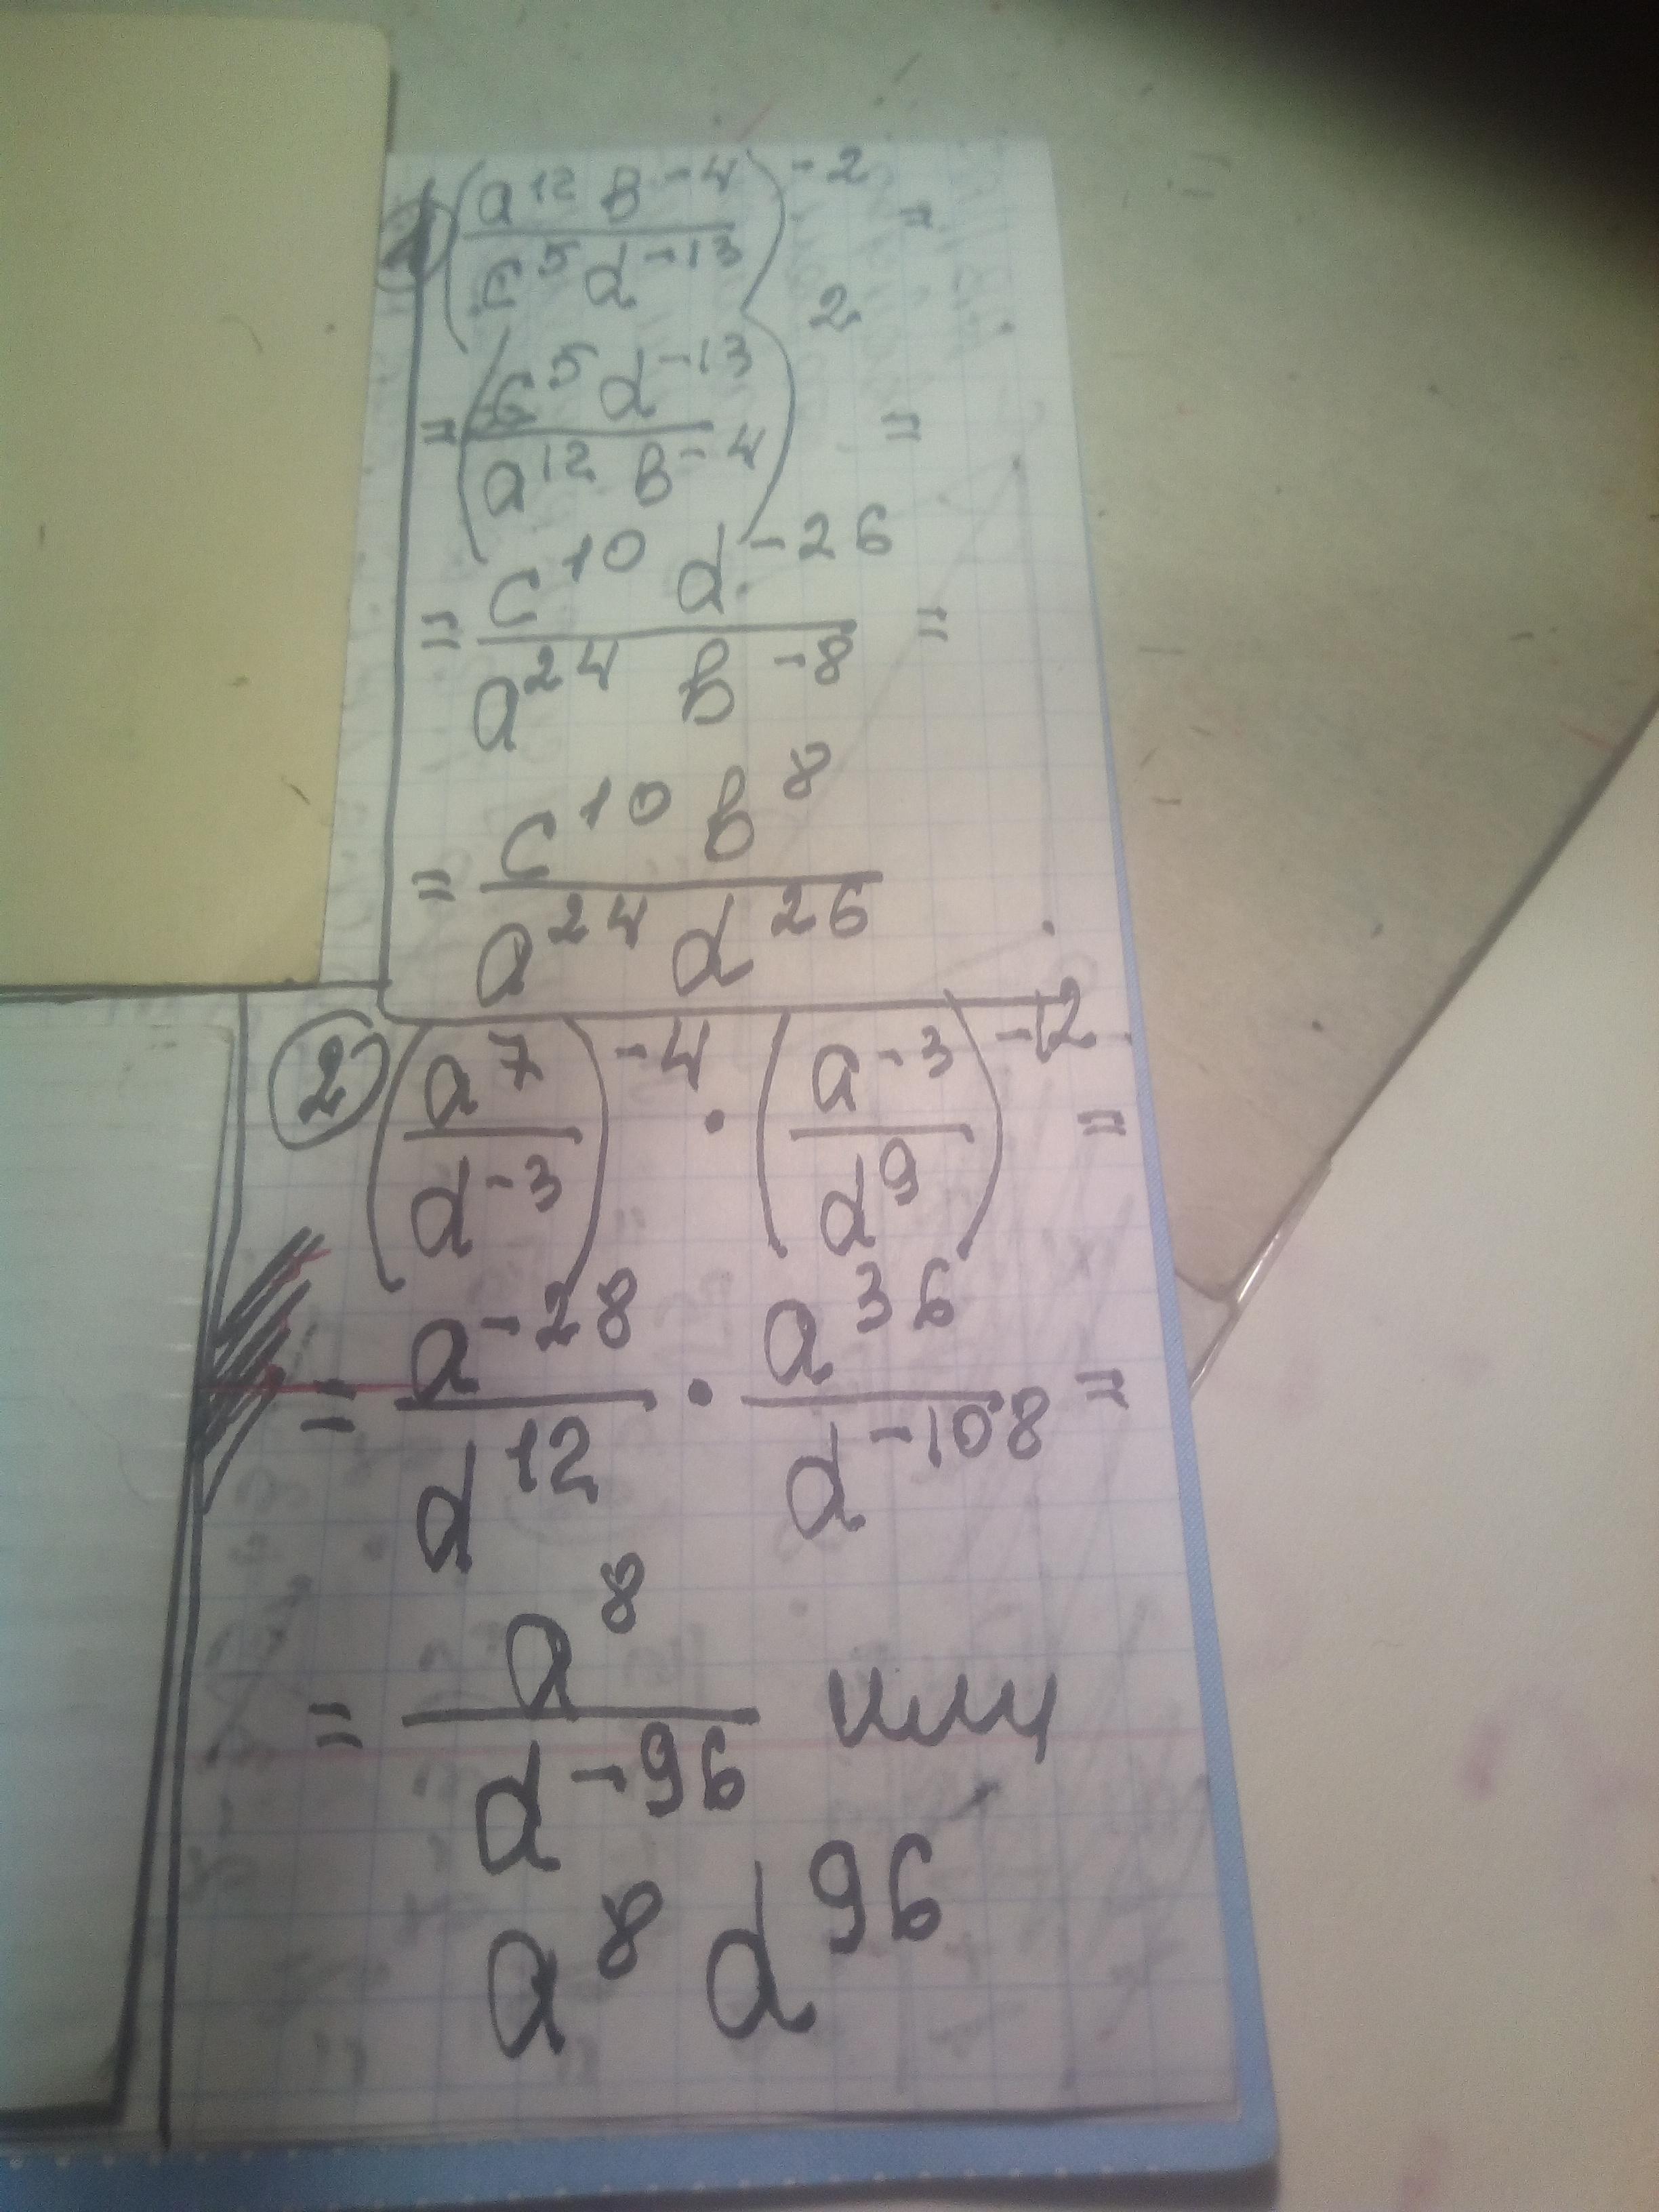 1) (a¹² b⁻⁴ / c⁵ d⁻¹³)⁻² =
= (c⁵ d⁻¹³ / a¹² b⁻⁴)² =
= c¹⁰ d⁻²⁶ / a²⁴ b⁻⁸ =
= c¹⁰ b⁸ / a²⁴ d²⁶
2) (a⁷ / d⁻³)⁻⁴ · (a⁻³ / d⁹)⁻¹² =
= a⁻²⁸ / d¹² · a³⁶ / d⁻¹⁰⁸ =
= a⁸ / d⁻⁹⁶ или
a⁸ d⁹⁶